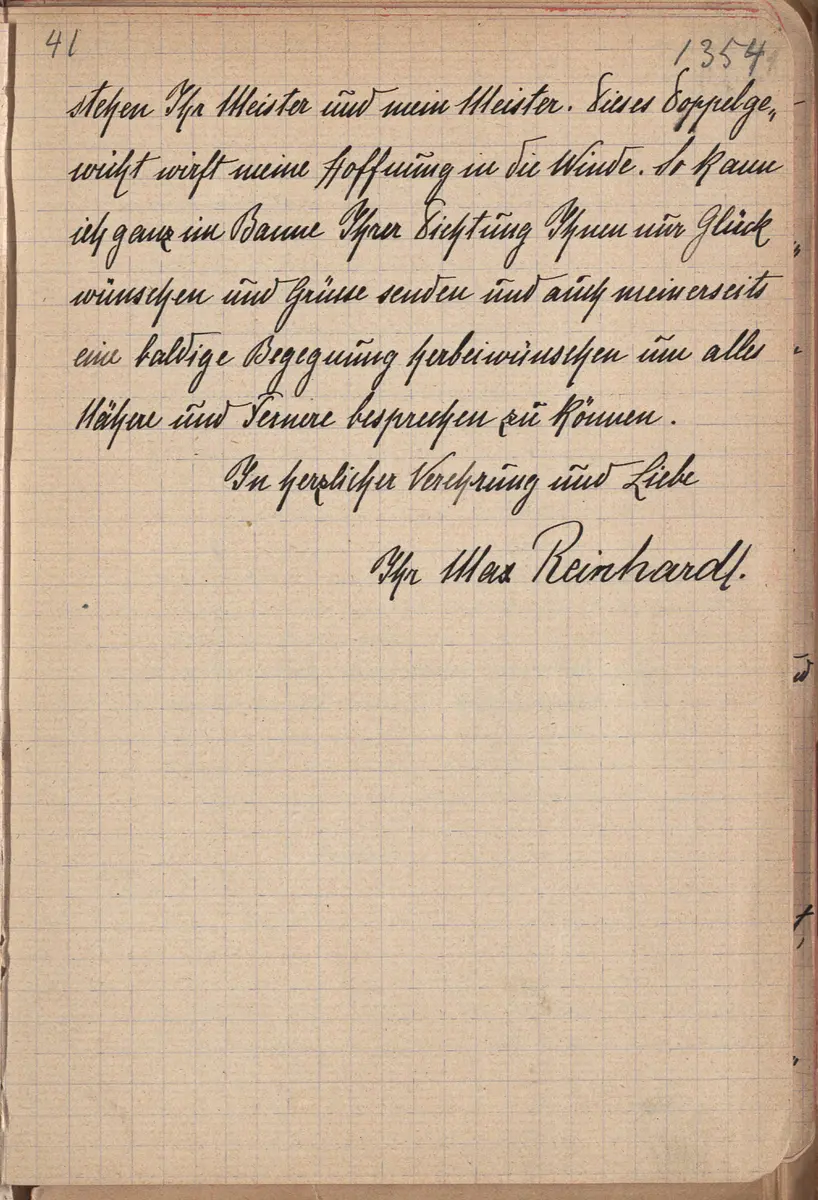 41
1354
stehen Ihr Meister und mein Meister. Dieses Doppelge„
wicht wirft meine Hoffnung in die Winde. So kann
ich ganz im Banne Ihrer Dichtung Ihnen nur Glück
wünschen und Grüsse senden und auch meinerseits
eine baldige Begegnung herbeiwünschen um alles
Nähere und Fernere besprechen zu können.
In herzlicher Verehrung und Liebe
Ihr Max Reinhardt.